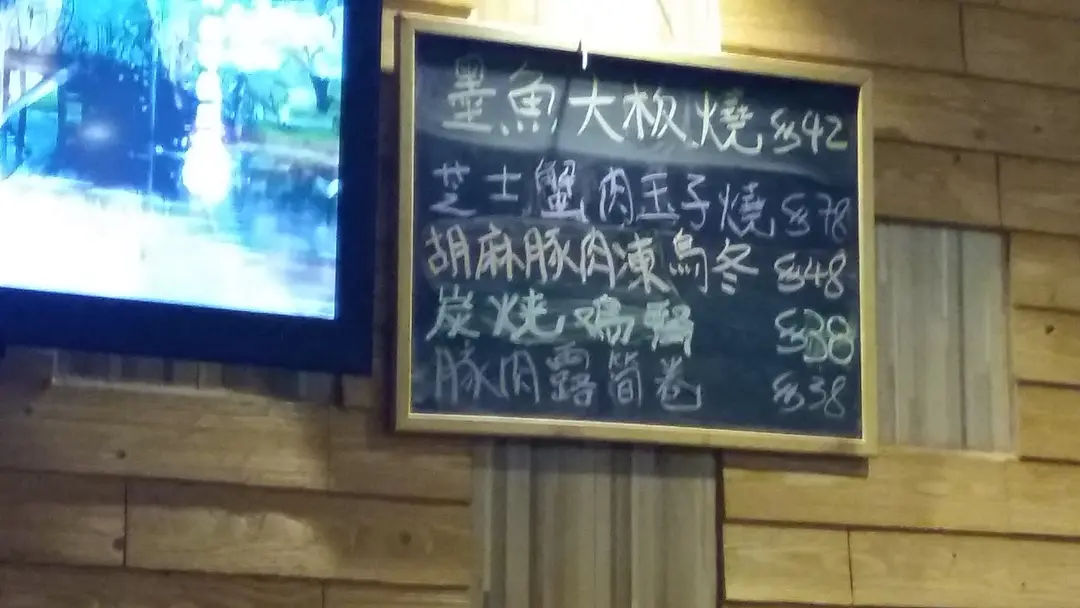 墨魚大板燒 $42
芝士蟹肉玉子燒 $78
胡麻豚肉凍烏冬 $48
炭燒鸡腎 $38
豚肉露筍卷 $38